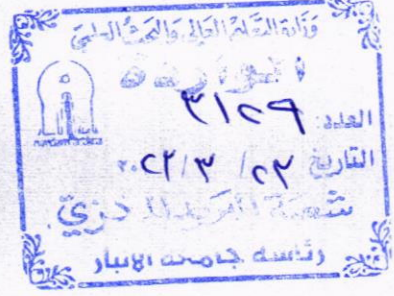 وزارة التعليم العالي والبحث العلمي
الواردة
العدد: ٣١٢٩
التاريخ
شعبة البريد المركزي
رئاسة جامعة الانبار